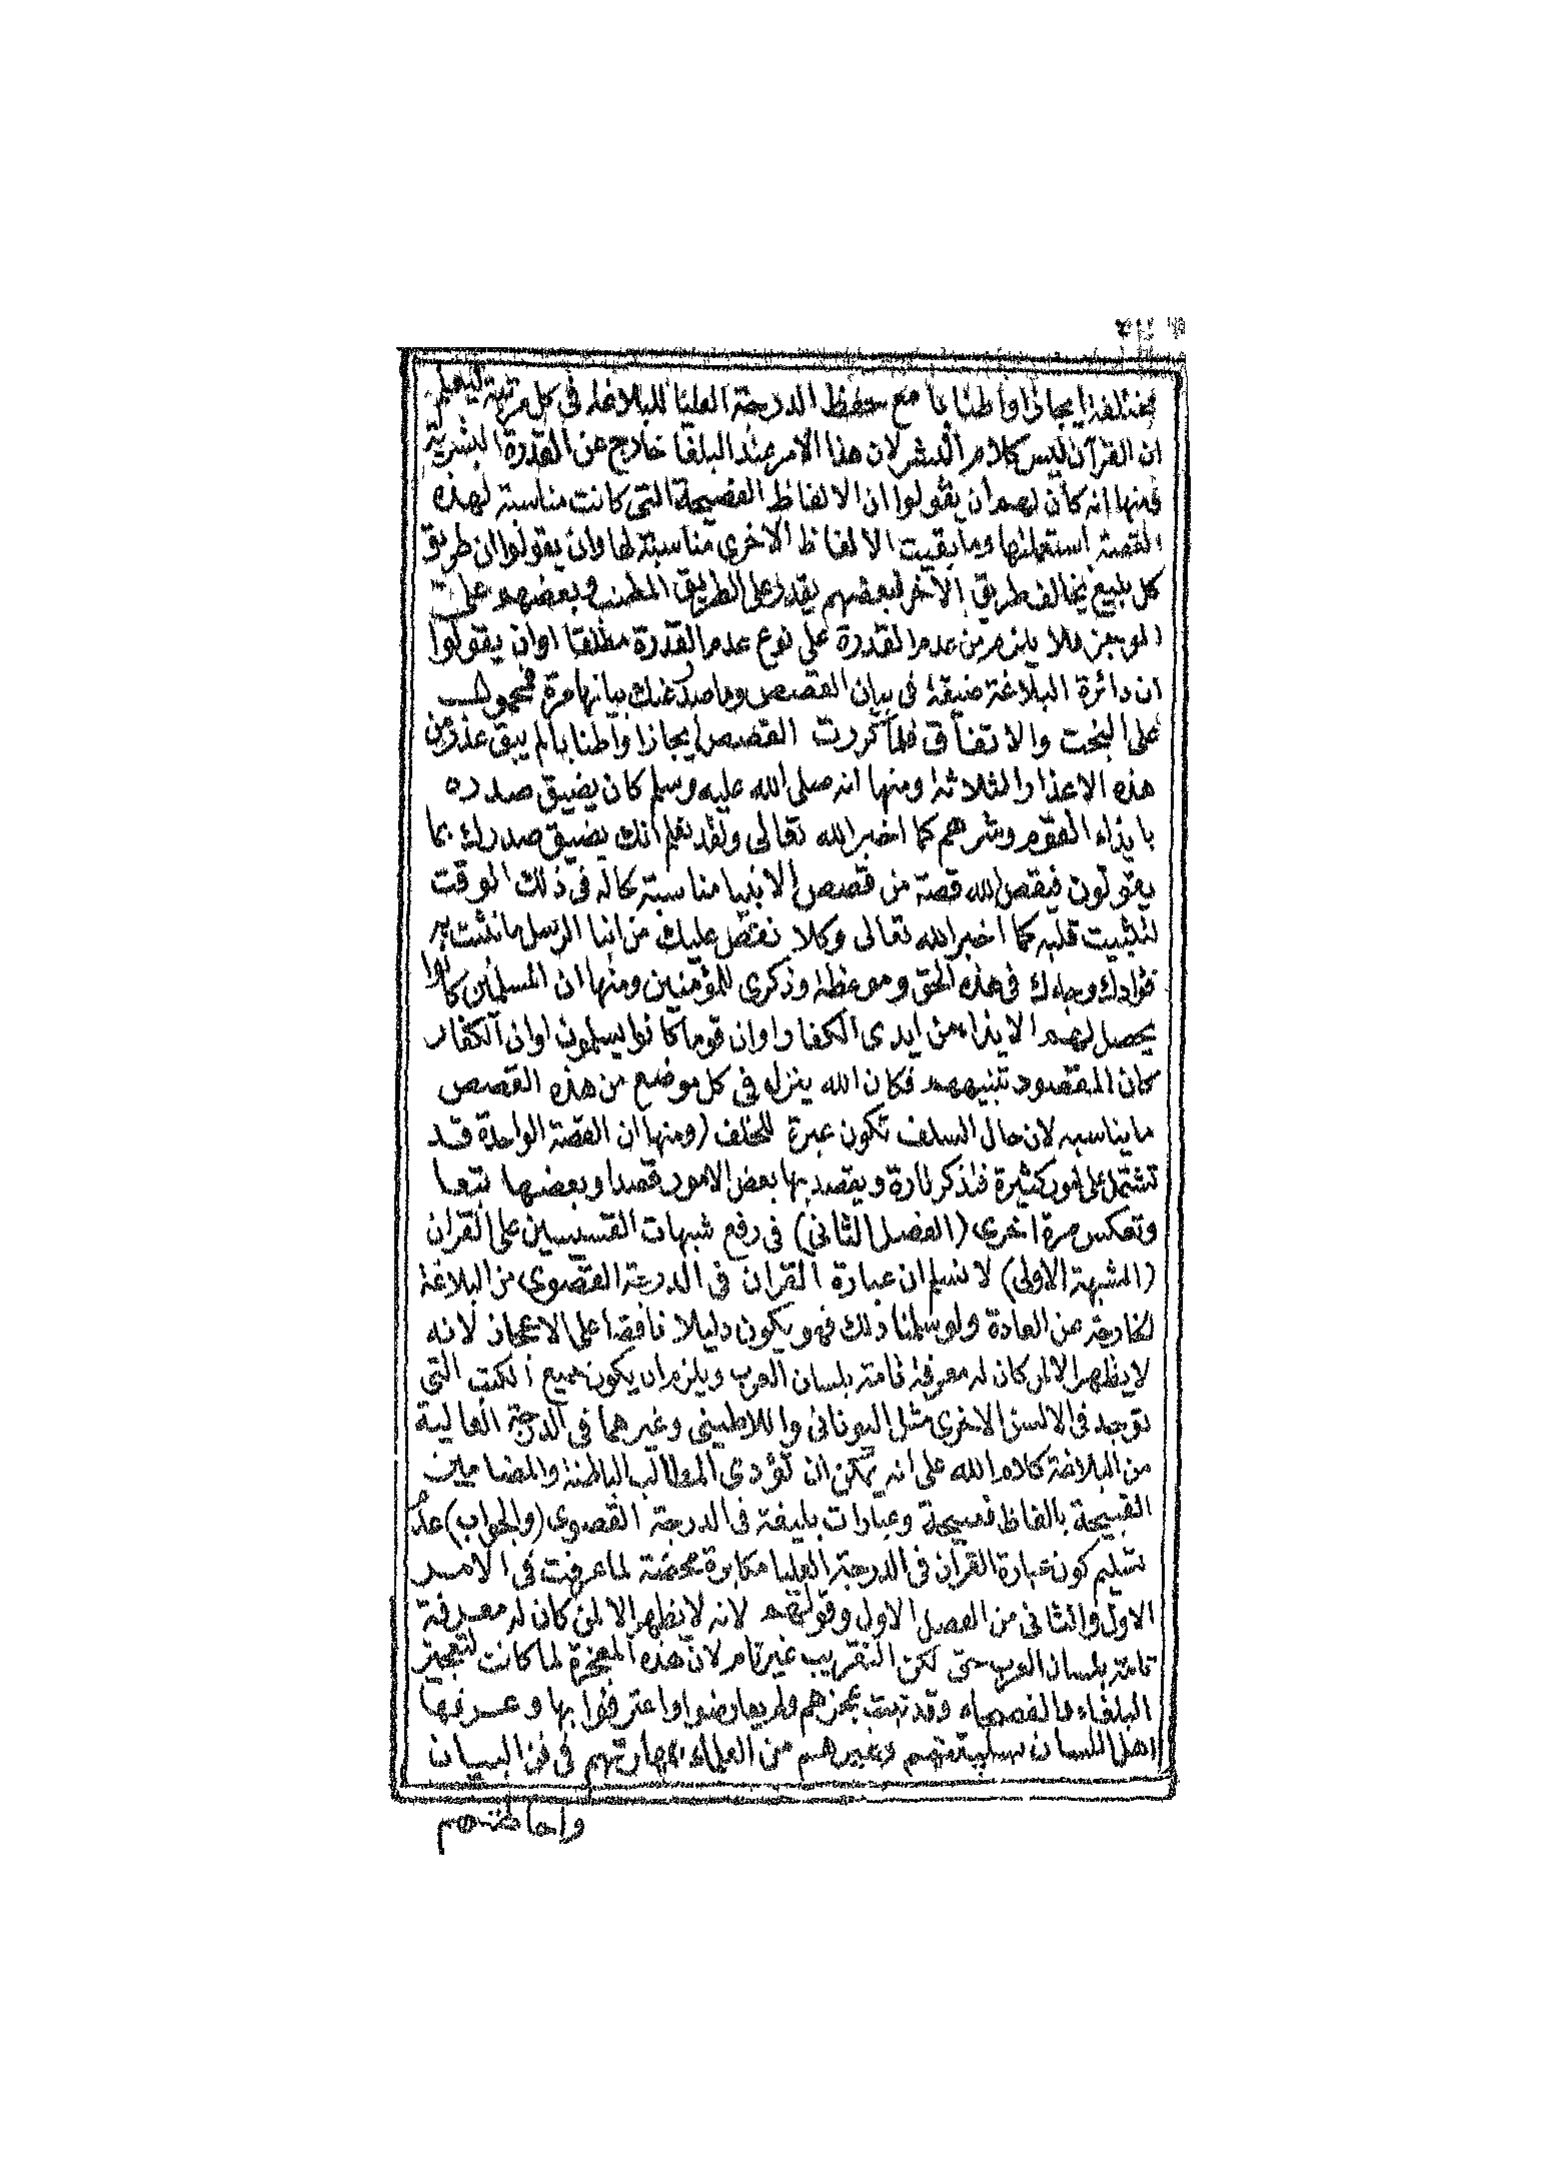 مختلفة ايجازا واطنابا مع حفظ الدرجة العليا للبلاغة فى كل مرتبة ليعلم
ان القرآن ليس كلام البشر لان هذا الامر عند البلغا خارج عن القدرة البشرية
ومنها انه كان لهم ان يقولوا ان الالفاظ الفصيحة التى كانت مناسبة لهذه
القصة استعملتها وما بقيت الالفاظ الاخرى مناسبة لها وان يقولوا ان طريق
كل بليغ يخالف طريق الآخر فبعضهم يقدر على الطريق المطنب وبعضهم على
الموجز فلا يلزم من عدم القدرة على نوع عدم القدرة مطلقا اوان يقولوا
ان دائرة البلاغة ضيقة فى بيان القصص وما صدر عنك بيانها مرة فمحمول
على البخت والاتفاق فلما تكررت القصص ايجازا واطنابا لم يبق عذر من
هذه الاعذار الثلاثة ومنها انه صلى الله عليه وسلم كان يضيق صدره
بايذاء القوم وشرهم كما اخبر الله تعالى ولقد نعلم انك يضيق صدرك بما
يقولون فيقص الله قصة من قصص الانبيا مناسبة لحاله فى ذلك الوقت
لتثبيت قلبه كما اخبر الله تعالى وكلا نقص عليك من انبا الرسل ما نثبت به
فؤادك وجاءك فى هذه الحق وموعظة وذكرى للمؤمنين ومنها ان المسلمين كانوا
يحصل لهم الايذاء من ايدى الكفار اوان قوما كانوا يسلمون اوان الكفار
كان المقصود تنبيههم فكان الله ينزل فى كل موضع من هذه القصص
ما يناسبه لان حال السلف تكون عبرة للخلف (ومنها ان القصة الواحدة قد
تشتمل على امور كثيرة فتذكر تارة ويقصد بها بعض الامور قصدا وبعضها تبعا
وتعكس مرة اخرى (الفصل الثانى) فى رفع شبهات القسيسين على القران
(الشبهة الاولى) لا نسلم ان عبارة القران فى الدرجة القصوى من البلاغة
الخارجة عن العادة ولو سلمنا ذلك فهو يكون دليلا ناقصا على الاعجاز لانه
لا يظهر الا لمن كان له معرفة تامة بلسان العرب ويلزم ان يكون جميع الكتب التى
توجد فى الالسن الاخرى مثل اليونانى واللاطينى وغيرهما فى الدرجة العالية
من البلاغة كلام الله على انه يمكن ان تؤدى المطالب الباطلة والمضامين
القبيحة بالفاظ فصيحة وعبارات بليغة فى الدرجة القصوى (والجواب) عدم
تسليم كون عبارة القرآن فى الدرجة العليا مكابرة محضة لما عرفت فى الامر
الاول والثانى من الفصل الاول وقولهم لانه لا يظهر الا لمن كان له معرفة
تامة بلسان العرب حق لكن التقريب غير تام لان هذه المعجزة لما كانت لتعجيز
البلغاء والفصحاء وقد ثبت عجزهم ولم يعارضوا واعترفوا بها وعرفها
اهل اللسان بسليقتهم وغيرهم من العلماء بمهارتهم فى فن البيان
واحاطتهم